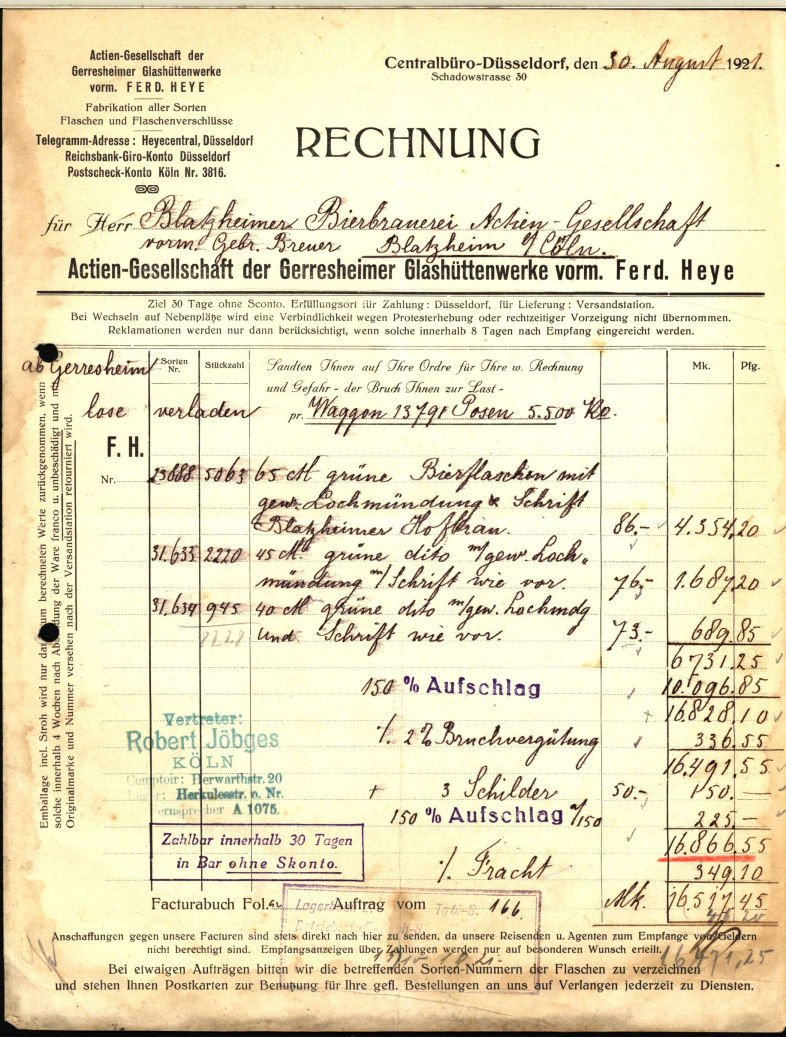 Actien-Gesellschaft der
Gerresheimer Glashüttenwerke
vorm. FERD. HEYE
Fabrikation aller Sorten
Flaschen und Flaschenverschlüsse
Telegramm-Adresse: Heyecentral, Düsseldorf
Reichsbank-Giro-Konto Düsseldorf
Postscheck-Konto Köln Nr. 3816.
Centralbüro-Düsseldorf, den 30. August 1921.
Schadowstrasse 30
RECHNUNG
für Herr Blatzheimer Bierbrauerei Actien-Gesellschaft
vorm. Gebr. Breuer Blatzheim b/Cöln.
Actien-Gesellschaft der Gerresheimer Glashüttenwerke vorm. Ferd. Heye
Ziel 30 Tage ohne Sconto. Erfüllungsort für Zahlung: Düsseldorf, für Lieferung: Versandstation.
Bei Wechseln auf Nebenplätze wird eine Verbindlichkeit wegen Protesterhebung oder rechtzeitiger Vorzeigung nicht übernommen.
Reklamationen werden nur dann berücksichtigt, wenn solche innerhalb 8 Tagen nach Empfang eingereicht werden.
ab Gerresheim
lose verladen
Sorten Nr. Stückzahl
Sandten Ihnen auf Ihre Ordre für Ihre w. Rechnung
und Gefahr - der Bruch Ihnen zur Last -
Mk. Pfg.
pr. Waggon 13791 Posen 5.500 Ko.
F. H.
Nr. 23888 5063 65 M grüne Bierflaschen mit
gew. Lochmündung & Schrift
Blatzheimer Hofbräu. 86.- 4.354,20
31.633 2220 45 M grüne dito m/gew. Loch-
mündung m/Schrift wie vor. 76,- 1.687,20
31.634 945 40 M grüne dito m/gew. Lochmdg
8228 und Schrift wie vor. 73.- 689.85
6731.25
150 % Aufschlag 10.096.85
16.828.10
% 2% Bruchvergütung 336.55
16.491.55
+ 3 Schilder 50.- 150.—
150 % Aufschlag a/150 225.—
16.866.55
% Fracht 349.10
Mk. 16.517.45
16471,25
Vertreter:
Robert Jöbges
KÖLN
Comptoir: Herwarthstr. 20
Herkulesstr. o. Nr.
Fernsprecher A 1075.
Zahlbar innerhalb 30 Tagen
in Bar ohne Skonto.
Facturabuch Fol. Auftrag vom
Tgb.-S. 166.
Emballage incl. Stroh wird nur dann zum berechneten Werte zurückgenommen, wenn
solche innerhalb 4 Wochen nach Absendung der Ware franco u. unbeschädigt und mit
Originalmarke und Nummer versehen nach der Versandstation retourniert wird.
Anschaffungen gegen unsere Facturen sind stets direkt nach hier zu senden, da unsere Reisenden u. Agenten zum Empfange von Geldern
nicht berechtigt sind. Empfangsanzeigen über Zahlungen werden nur auf besonderen Wunsch erteilt.
Bei etwaigen Aufträgen bitten wir die betreffenden Sorten-Nummern der Flaschen zu verzeichnen
und stehen Ihnen Postkarten zur Benutzung für Ihre gefl. Bestellungen an uns auf Verlangen jederzeit zu Diensten.